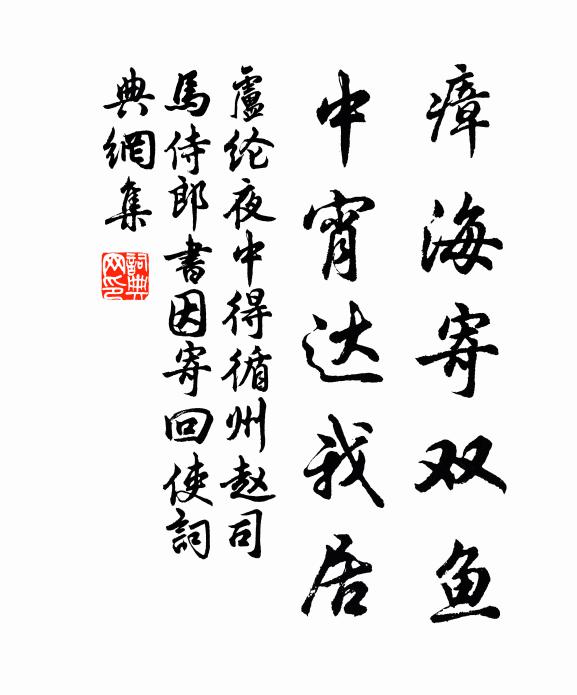 瘴海寄双鱼
中宵达我居
盧纶夜中得循州赵司
馬侍郎書因寄回使詞
典網集
詞典网印